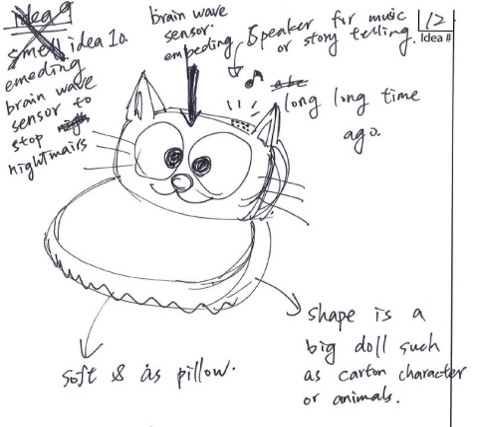 idea 9
smell idea 10.
emeding
brain wave
sensor to
stop
nightmairs
brain wave
sensor.
empeding
Speaker for music
or story telling.
12
Idea #
long long time
ago.
shape is a
big doll such
as carton character
or animals.
soft & as pillow.